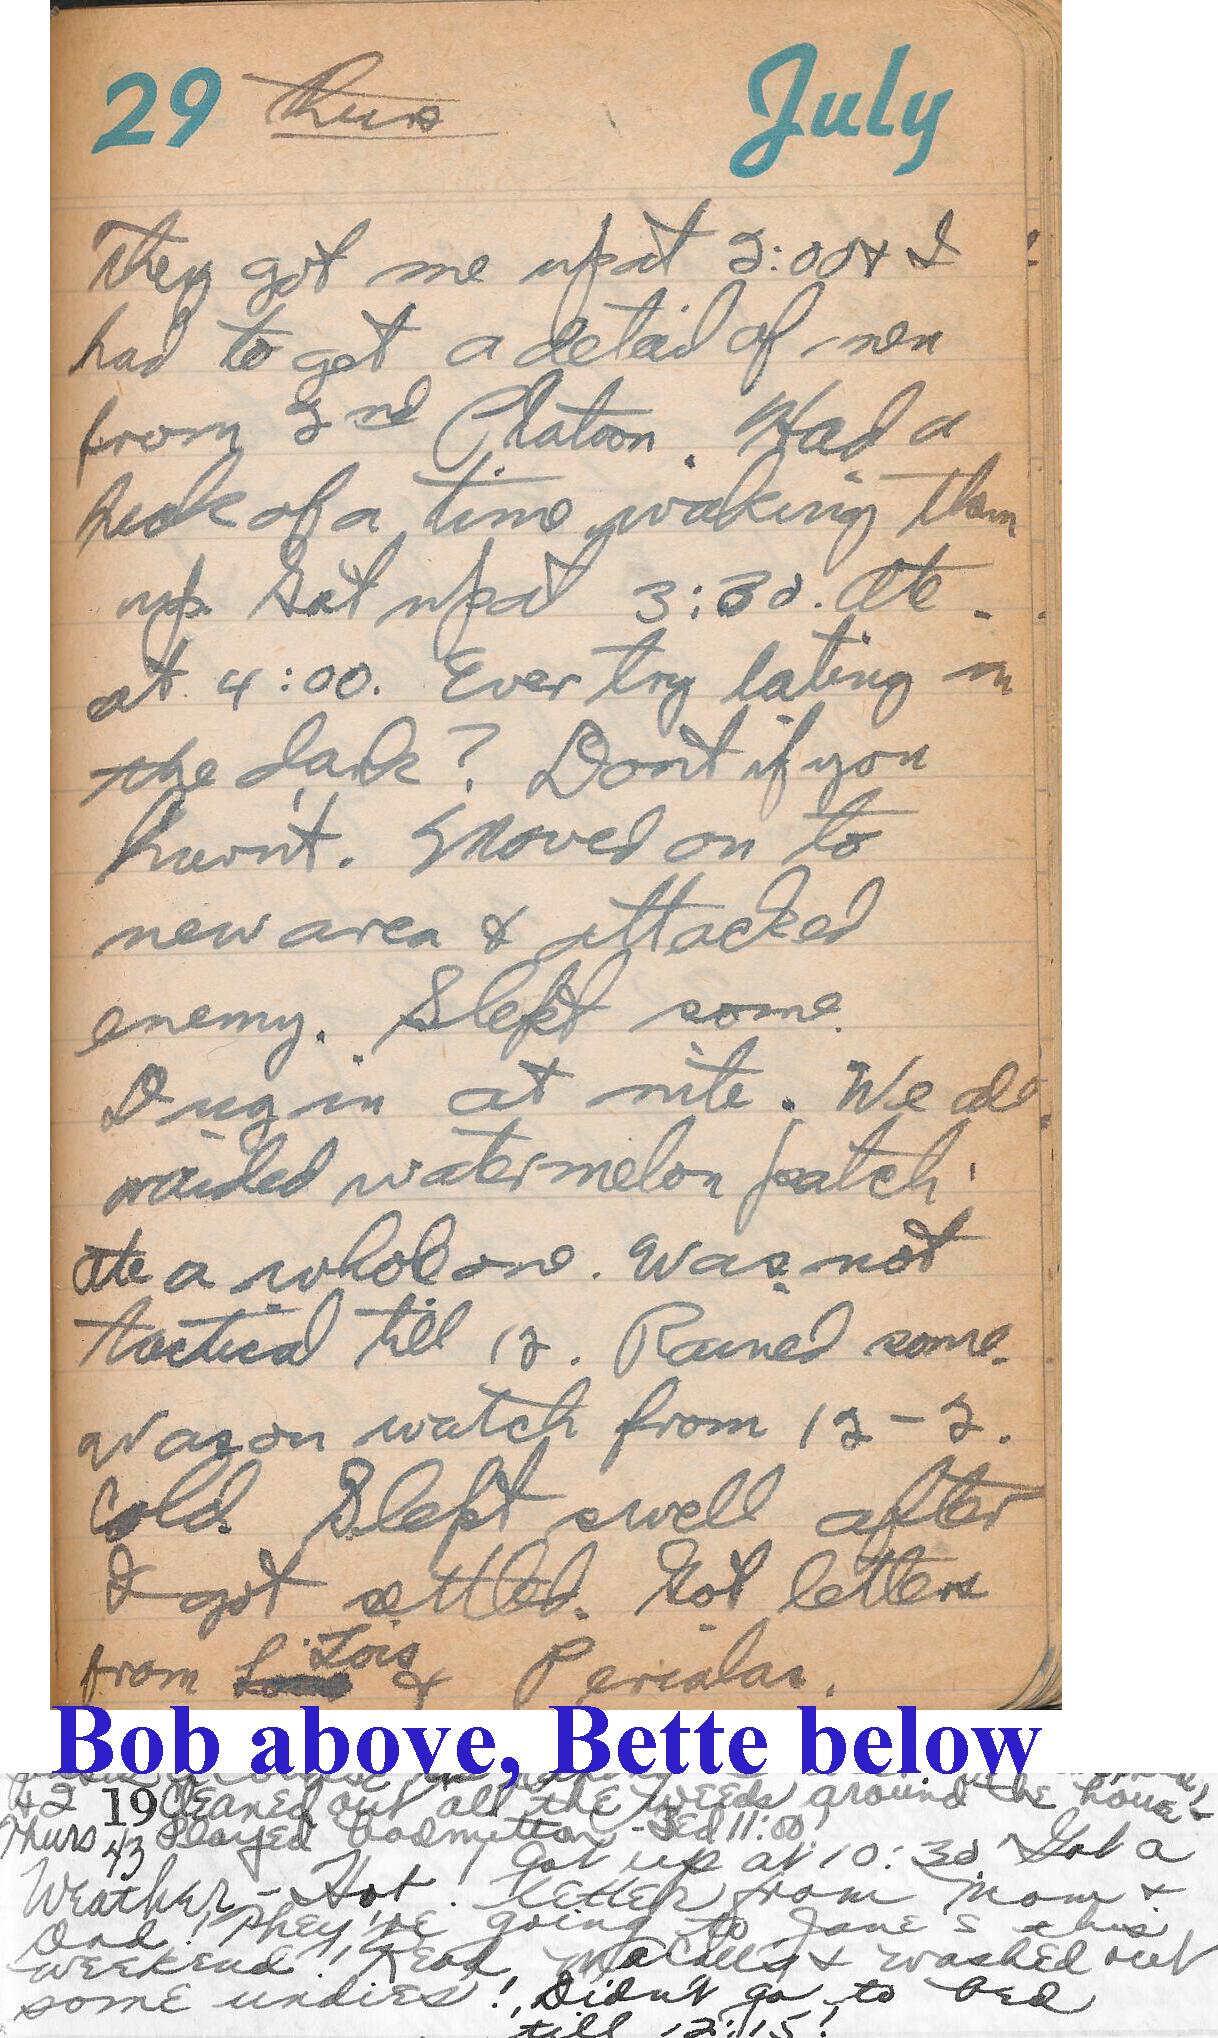 29 Thurs July
They got me up at 2:00 & I
had to get a detail of men
from 2nd Platoon. Had a
heck of a time waking them
up. Got up at 3:30. Ate
at 4:00. Ever try eating in
the dark? Don't if you
haven't. Moved on to
new area & attacked
enemy. Slept some.
Dug in at nite. We all
raided watermelon patch.
Ate a whole one. Was not
tactical till 12. Rained some.
Was on watch from 12-2.
Cold. Slept swell after
I got settled. Got letters
from Lois &
Bob above, Bette below
42 19 Cleaned out all the weeds around the house-
Thurs 43 Played badmitton - Bed 11:00
Got up at 10:30 Got a
Weather - Hot! letter from Mom &
Dad! They're going to Jane's this
weekend! Read McCalls & washed out
some undies! Didn't go to bed
till 12:15!